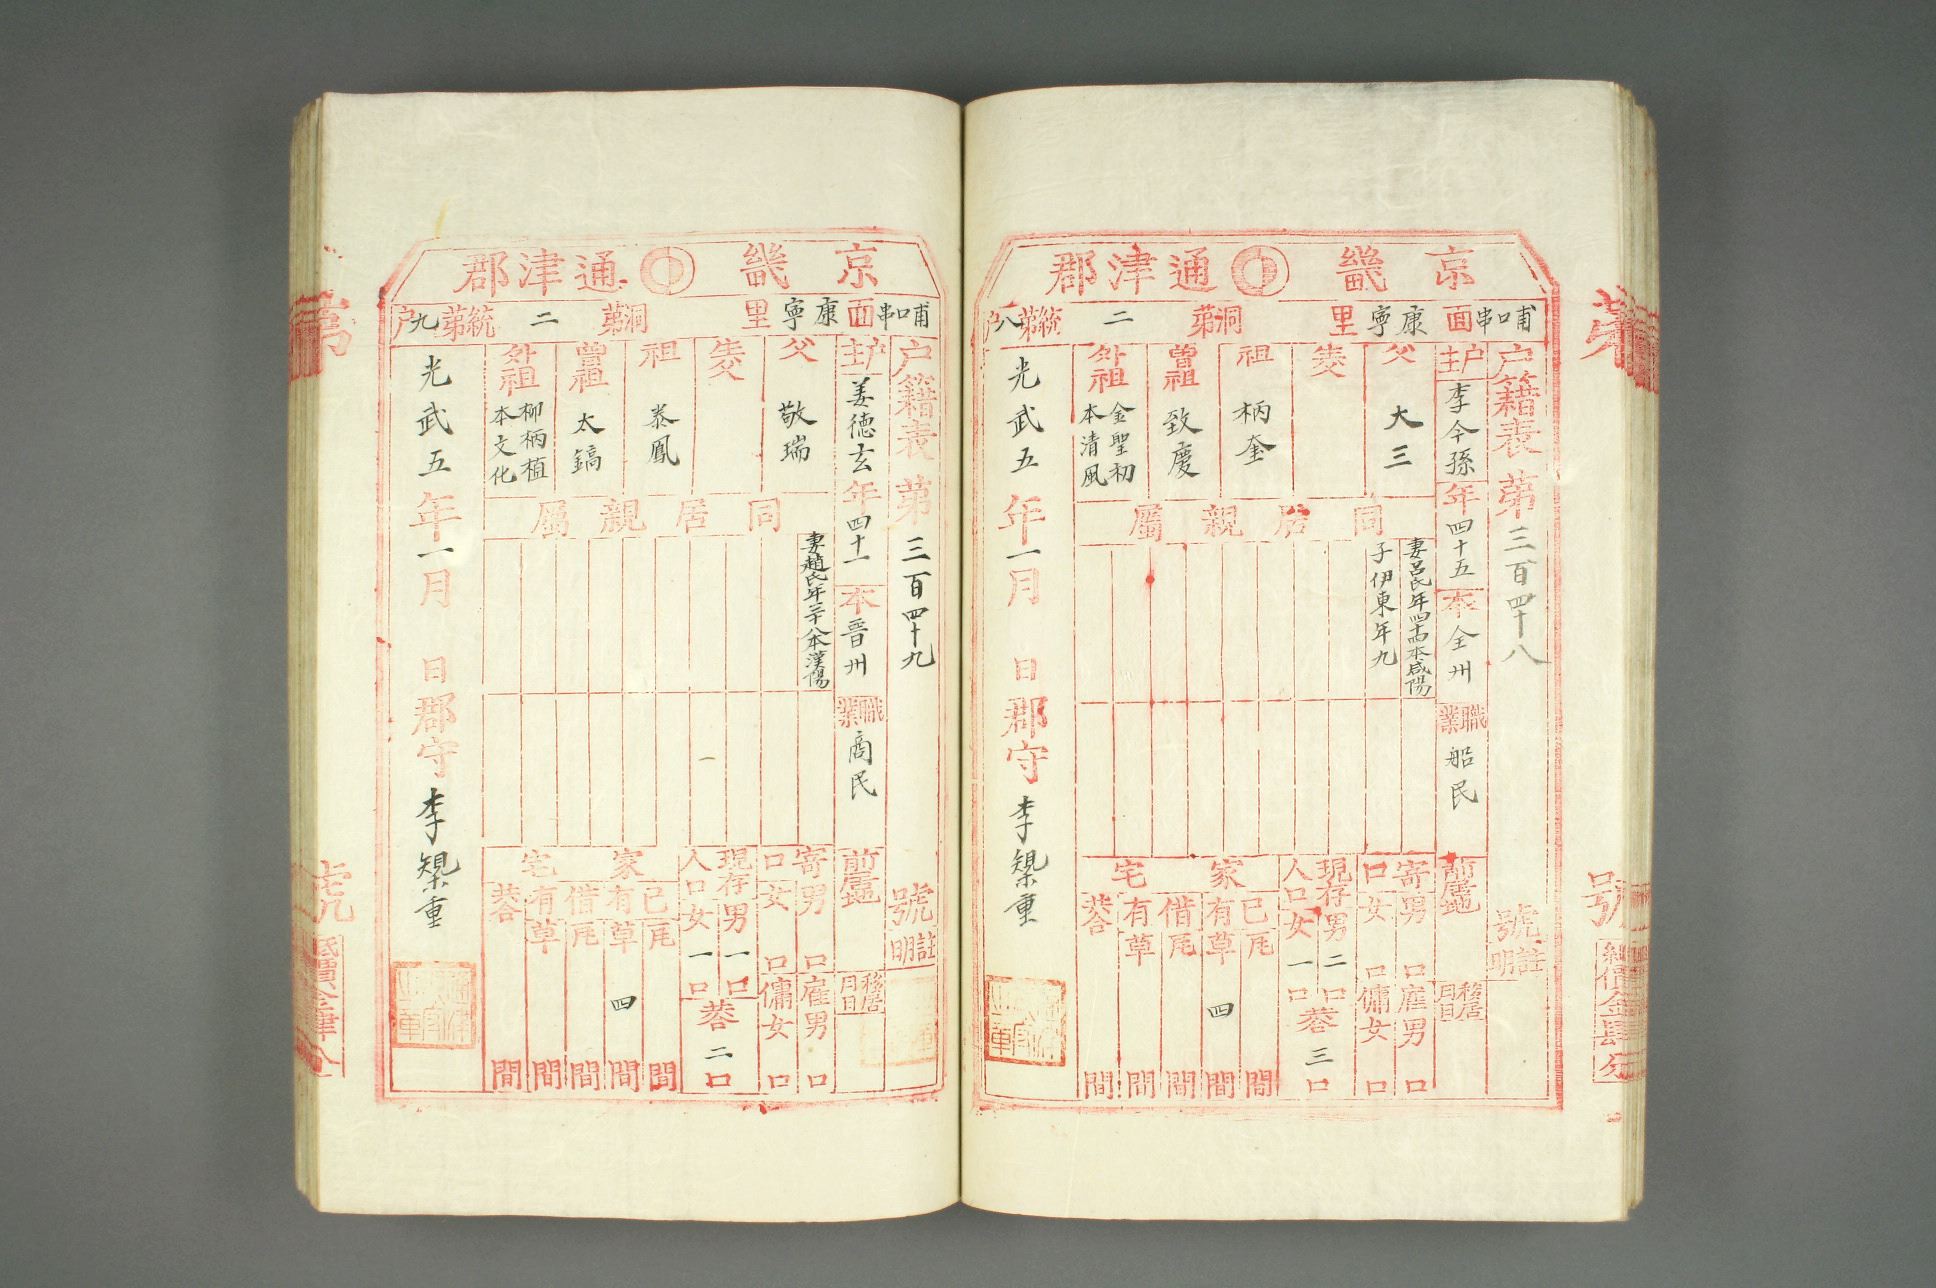 京畿通津郡
哺口串面康寧里洞第二統第八戶
戶籍表第三百四十八號
註明
戶主李今孫年四十五本全州職業船民前居地
移居月日
父大三
生父
祖柄奎
曾祖致慶
外祖金聖初本清風
同居親屬
妻呂氏年四十四本咸陽
子伊東年九
寄口男口女口
雇男口傭女口
現存人口男二口女一口
共合三口
家宅
己有瓦間
草四間
借有瓦間
草間
共合間
光武五年一月日郡守李㮚重
京畿通津郡
哺口串面康寧里洞第二統第九戶
戶籍表第三百四十九號
註明
戶主姜德玄年四十一本晉州職業商民前居地
移居月日
父敬瑞
生父
祖泰鳳
曾祖太鎬
外祖柳柄植本文化
同居親屬
妻趙氏年三十八本漢陽
寄口男口女口
雇男口傭女口
現存人口男一口女一口
共合二口
家宅
己有瓦間
草四間
借有瓦間
草間
共合間
光武五年一月日郡守李㮚重